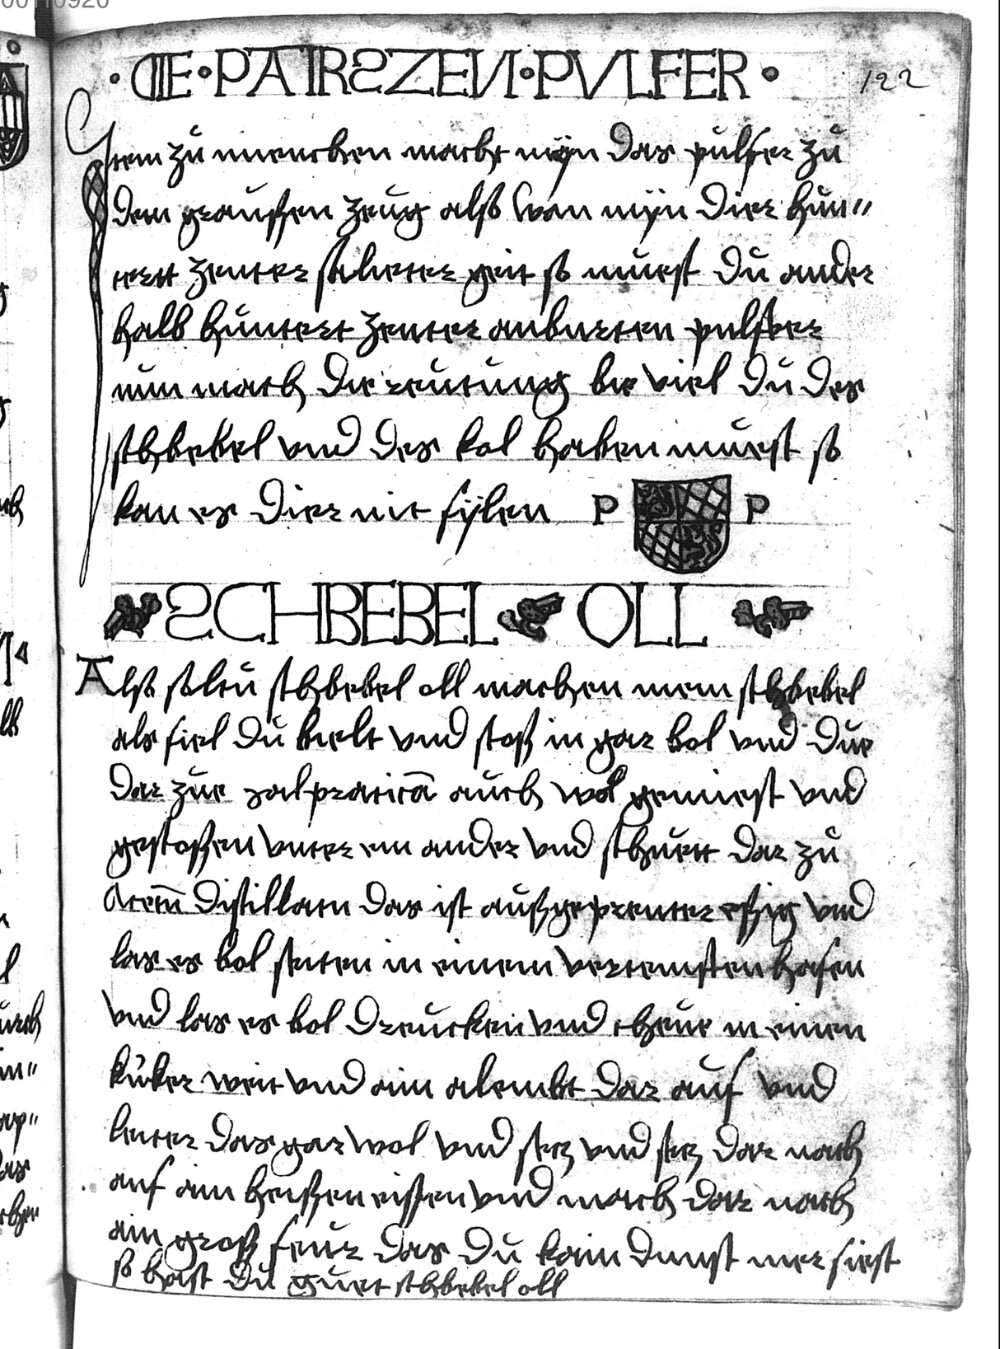 · DIE · PAIRSZEN · PVLFER ·
122
Jtem zu muenchen macht myn das pulfer zu
dem graussen zeug alß wan myn dier hun〃
tertt zenter salieter geit so muest du ander
halb huntert zenter anburten pulffer
nun mach die reutung bie viel du des
schbebel vnd des kol haben muest so
kan es dier nit fÿlen P P
SCHBEBEL OLL
Alß soltu schbebel oll machen nem schbebel
als fiel du bielt vnd stoß in gar bol vnd due
dar zue salpraticā auch wol geniest vnd
gestossen vnter ein ander vnd schuett dar zu
Acetū distillatn das ist außgeprenter essig vnd
las es bol sieten in einem verteinsten hafen
vnd las es bol drucken vnd theue in einen
kuker weit vnd ain alembt dar auf vnd
leuter das gar wol vnd setz vnd setz dar nach
auf ain heissen eissen vnd mach dar nach
ain groß feur das du kain dunst mer siest
so hast du guet schbebel oll